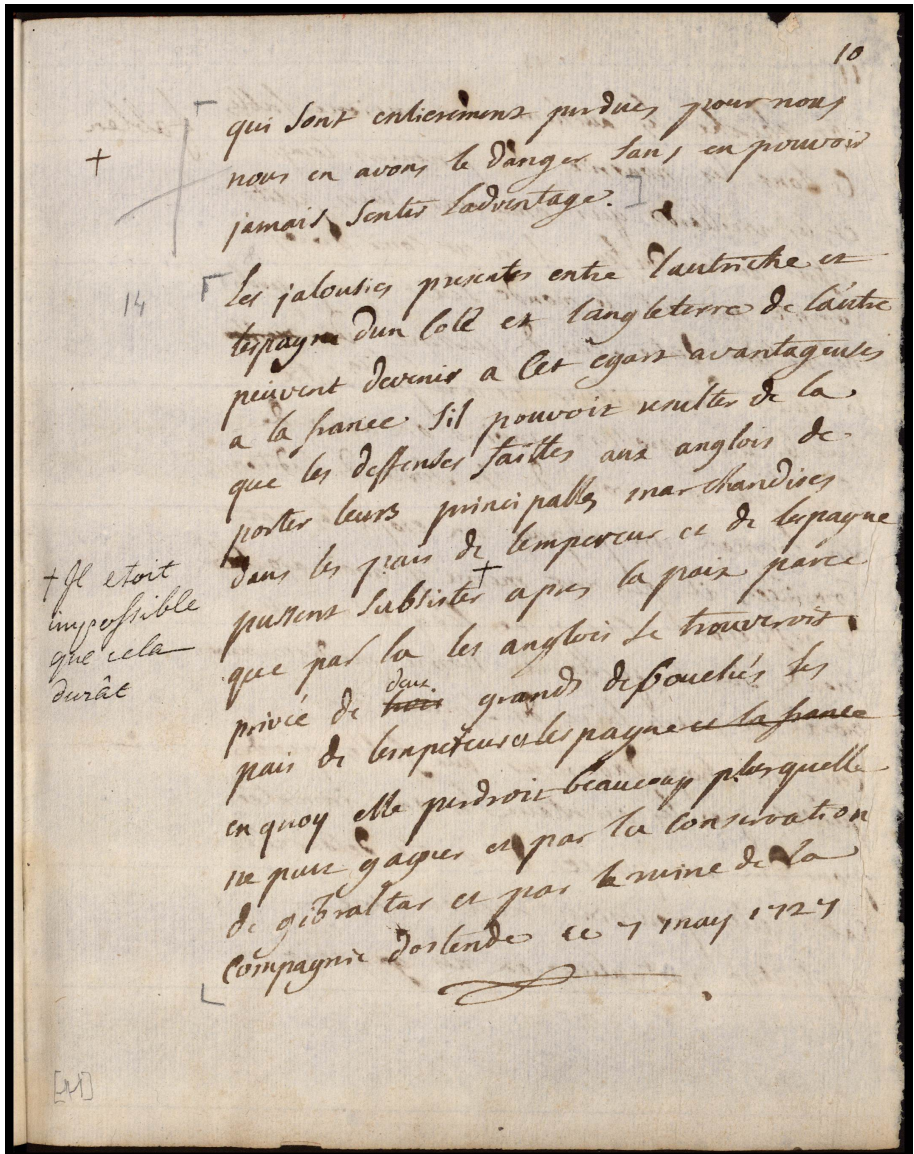 10
qui sont entierement perdues pour nous
+ nous en avons le danger sans en pouvoir
jamais sentir ladventage. ]
14 Les jalousies presentes entre lautriche et
lespagne dun Coté et langleterre de lautre
peuvent devenir a Cet egart avantageuses
a la france sil pouvoit resulter de la
que les deffenses faittes aux anglois de
porter leurs principalles marchandises
dans les païs de lempereur et de lespagne
pussent subsister + apres la paix parce
que par la les anglois se trouveroit
privée de trois deux grands debouchés les
païs de lempereur et lespagne et la france
en quoy elle perdroit beaucoup plus quelle
ne peut gagner et par la Conservation
de gibraltar et par la ruine de la
Compagnie dostende ce 7 may 1727
+ Il etoit
impossible
que cela
durât